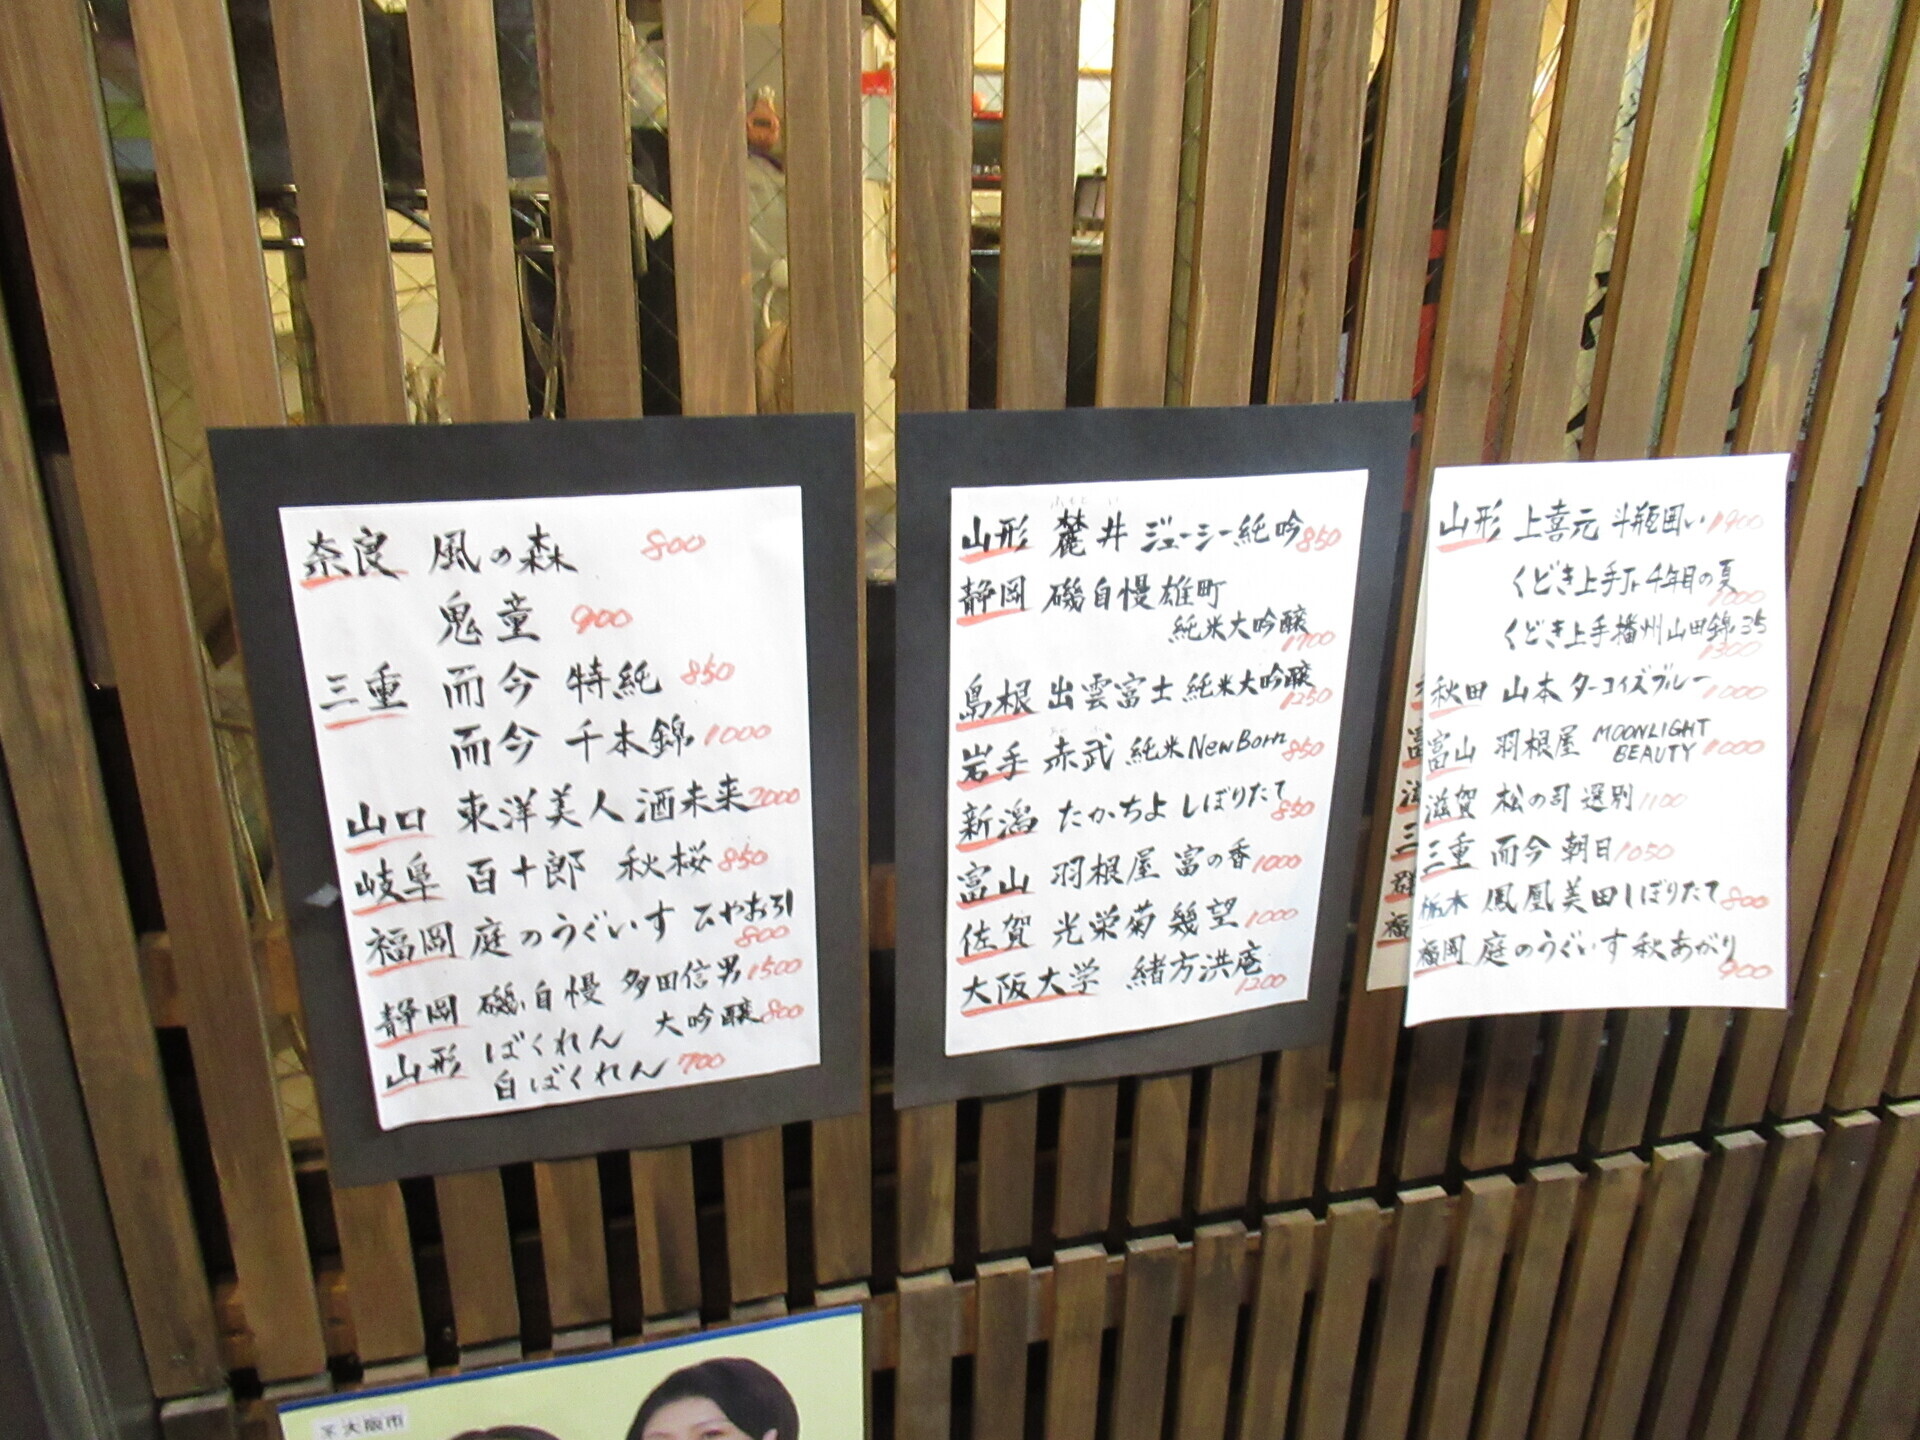 奈良 風の森 800
鬼童 900
三重 而今 特純 850
而今 千本錦 1000
山口 東洋美人 酒未来 2000
岐阜 百十郎 秋桜 850
福岡 庭のうぐいす ひやおろし
800
静岡 磯自慢 多田信男 1500
大吟醸 800
山形 ばくれん
白ばくれん 700
山形 麓井 ジューシー純吟 850
静岡 磯自慢 雄町
純米大吟醸
1700
島根 出雲富士 純米大吟醸
1250
岩手 赤武 純米 NewBorn 850
新潟 たかちよ しぼりたて
850
富山 羽根屋 富の香 1000
佐賀 光栄菊 幾望 1000
大阪大学 緒方洪庵
1200
山形 上喜元 斗瓶囲い 1900
くどき上手Jr 千年目の夏
1000
くどき上手播州山田錦35
1300
秋田 山本 ターコイズブルー 1000
富山 羽根屋 MOONLIGHT
BEAUTY 1000
滋賀 松の司 選別 1100
三重 而今 朝日 1050
栃木 鳳凰美田しぼりたて 800
福岡 庭のうぐいす 秋あがり
900
富
滋
三
群
福
大阪市